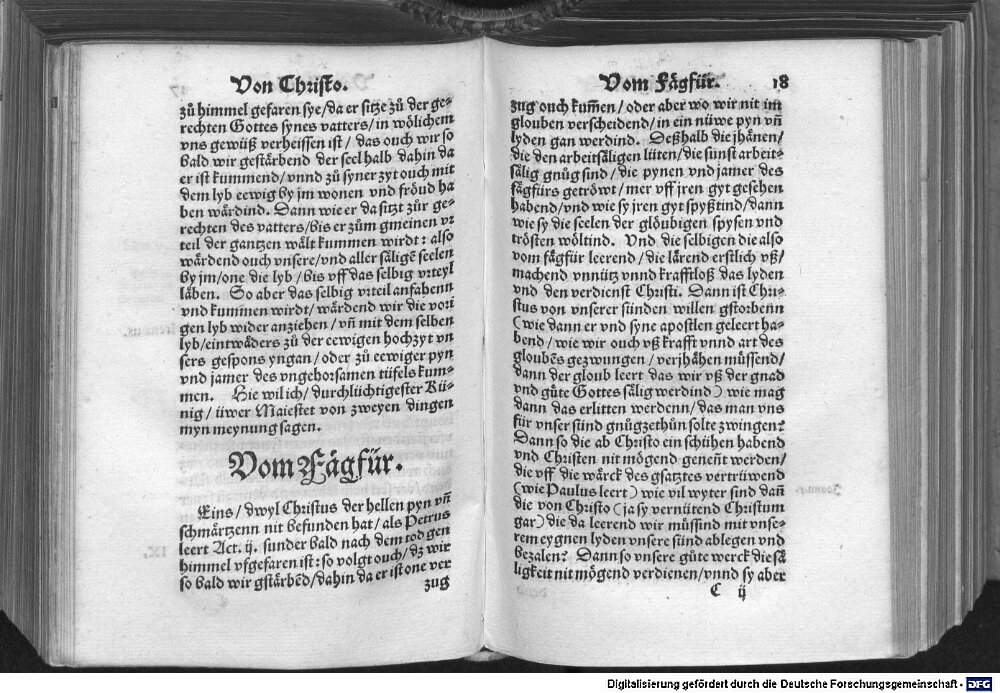 Von Christo.
zů himmel gefaren sye/da er sitze zů der ge⸗
rechten Gottes synes vatters/in wölichem
vns gewüß verheissen ist/ das ouch wir so
bald wir gestärbend der seel halb dahin da
er ist kummend/vnnd zů syner zyt ouch mit
dem lyb eewig by jm wonen vnd fröud ha
ben wärdind. Dann wie er da sitzt zůr ge⸗
rechten des vatters/bis er zům gmeinen vr
teil der gantzen wält kummen wirdt: also
wärdend ouch vnsere/vnd aller säligē seelen
by jm/one die lyb/bis vff das selbig vrteyl
läben. So aber das selbig vrteil anfahenn
vnd kummen wirdt/wärdend wir die vori
gen lyb wider anziehen/vñ mit dem selben
lyb/eintwäders zů der eewigen hochzyt vn
sers gespons yngan/oder zů eewiger pyn
vnd jamer des vngehorsamen tüfels kum⸗
men. Hie wil ich/durchlüchtigester Kü⸗
nig/üwer Maiestet von zweyen dingen
myn meynung sagen.
Vom Fägfür.
Eins/dwyl Christus der hellen pyn vñ
schmärtzenn nit befunden hat/als Petrus
leert Act. ij. sunder bald nach dem tod gen
himmel vfgefaren ist: so volgt ouch/dz wir
so bald wir gstärbēd/dahin da er ist one ver
zug
Vom Fägfür. 18
zug ouch kum̃en/oder aber wo wir nit im
glouben verscheidend/in ein nüwe pyn vñ
lyden gan werdind. Deßhalb die jhänen/
die den arbeitsäligen lüten/die sunst arbeit⸗
sälig gnůg sind/die pynen vnd jamer des
fägfürs getröwt/mer vff jren gyt gesehen
habend/vnd wie sy jren gyt spyßtind/dann
wie sy die seelen der glöubigen spysen vnd
trösten wöltind. Vnd die selbigen die also
vom fägfür leerend/die lärend erstlich vß/
machend vnnütz vnnd krafftloß das lyden
vnd den verdienst Christi. Dann ist Chri⸗
stus von vnserer sünden willen gstorbenn
(wie dann er vnd syne apostlen geleert ha⸗
bend/wie wir ouch vß krafft vnnd art des
gloubens gezwungen/verjhähen müssend/
dann der gloub leert das wir vß der gnad
vnd güte Gottes sälig werdind) wie mag
dann das erlitten werdenn/das man vns
für vnser sünd gnůgzethůn solte zwingen?
Dann so die ab Christo ein schühen habend
vnd Christen nit mögend geneñt werden/
die vff die wärck des gsatztes vertrüwend
(wie Paulus leert) wie vil wyter sind dañ
die von Christo (ja sy vernütend Christum
gar) die da leerend wir müssind mit vnse⸗
rem eygnen lyden vnsere sünd ablegen vnd
bezalen? Dann so vnsere güte werck die sä
ligkeit nit mögend verdienen/vnnd sy aber
C ij
Digitalisierung gefördert durch die Deutsche Forschungsgemeinschaft - DFG